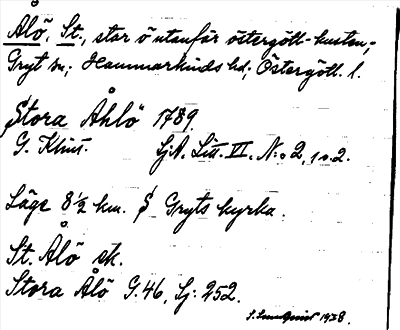 Ålö, St., stor ö utanför östergött-kusten,-
Gryt sn; Hammarkinds hd; Östergötl. l.
Stora Åhlö 1789.
G. Klint. Sj.A. Litt. VI. N:o 2, 1 o. 2.
Läge 8 1/2 km. S Gryts kyrka.
St. Ålö sk.
Stora Ålö G. 46, Sj: 252.
1938.